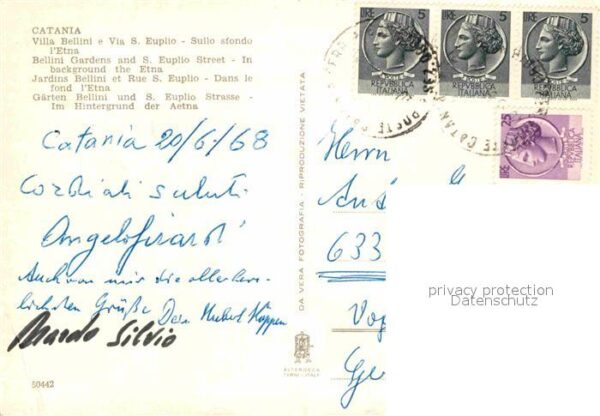 CATANIA
Villa Bellini e Via S. Euplio - Sullo sfondo
l'Etna
Bellini Gardens and S. Euplio Street - In
background the Etna
Jardins Bellini et Rue S. Euplio - Dans le
fond l'Etna
Gärten Bellini und S. Euplio Strasse -
Im Hintergrund der Aetna
Catania 20/6/68
Cordiali saluti
Auch von mir die allerherz-
lichsten Grüße Dein Hubert
Silvio
50442
DA VERA FOTOGRAFIA - RIPRODUZIONE VIETATA
ALTEROCCA
TERNI - ITALY
LIRE 5
REPVBBLICA
ITALIANA
LIRE 5
REPVBBLICA
ITALIANA
LIRE 5
REPVBBLICA
ITALIANA
LIRE 25
REPVBBLICA
ITALIANA
Herrn
633
privacy protection
Datenschutz